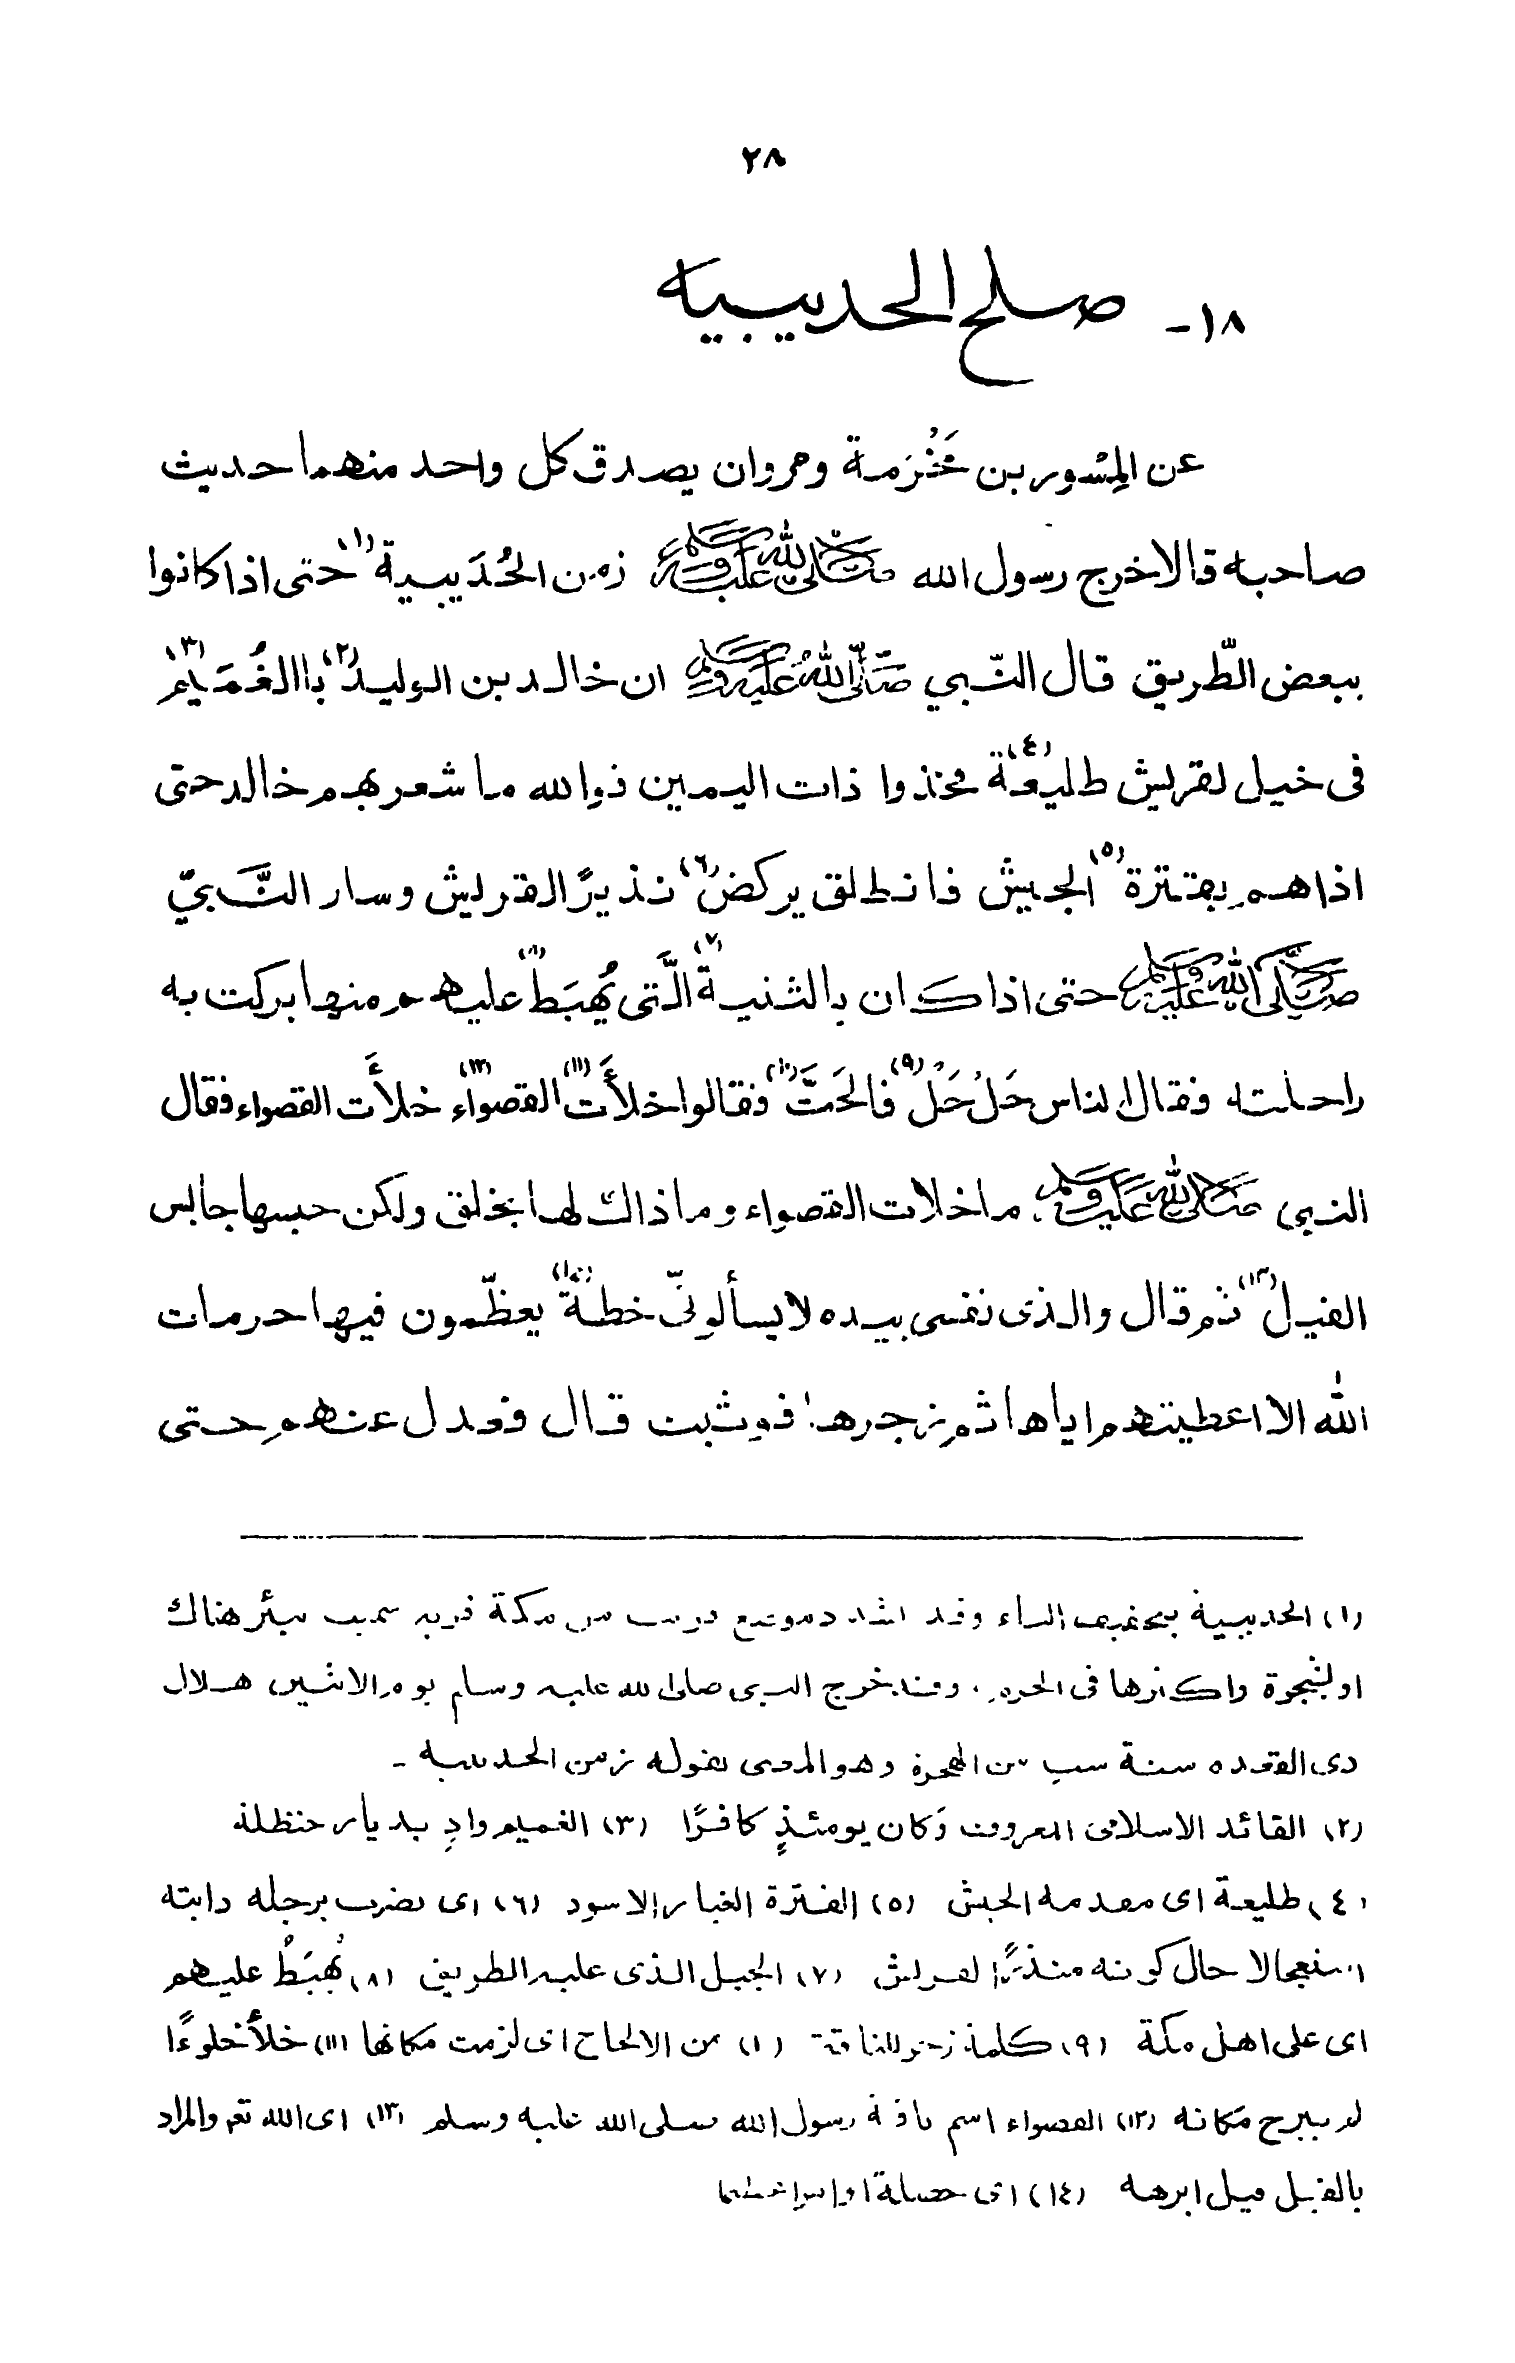 ٢٨
١٨- صلح الحديبيه
عن المِسْور بن مَخْرَمة ومروان يصدق كل واحد منهما حديث
صاحبه قالا خرج رسول الله صلى الله عليه وسلم زمن الحُدَيبية (١) حتى اذا كانوا
ببعض الطّريق قال النّبي صلى الله عليه وسلم ان خالد بن الوليد (٢) باالغُمَيم (٣)
فى خيل لقريش طليعة (٤) فخذوا ذات اليمين فوالله ما شعر بهم خالد حتى
اذا هم بقترة (٥) الجيش فانطلق يركض (٦) نذيرًا لقريش وسار النَّبيّ
صلى الله عليه وسلم حتى اذا كان بالثنية (٧) الَّتى يُهبَط (٨) عليهم منها بركت به
راحلته فقال الناس حَلْ حَلْ (٩) فالحَتَّ (١٠) فقالوا خلأَت (١١) القصواء (١٢) خلأَت القصواء فقال
النبى صلى الله عليه وسلم ما خلات القصواء وما ذاك لها بخلق ولكن حبسها حابس
الفيل (١٣) ثم قال والذى نفسى بيده لا يسألونّى خطة (١٤) يعظّمون فيها حرمات
الله الا اعطيتهم اياها ثم زجرها فوثبت قال فعدل عنهم حتى
(١) الحديبية بتخفيف الياء وقد تشدد موضع قريب من مكة قريه سميت ببئر هناك
او لشجرة واكثرها فى الحرم . وقد خرج النبى صلى الله عليه وسلم يوم الاثنين هلال
ذى القعده سنة ست من الهجرة وهو المعنى بقوله زمن الحديبيه -
(٢) القائد الاسلامى المعروف وَكان يومئذٍ كافرًا (٣) الغميم وادِ بديار حنظلة
(٤) طليعة اى مقدمه الجيش (٥) القترة الغبار الاسود (٦) اى يضرب برجله دابته
استعجالا حال كونه منذرًا لقريش (٧) الجبل الذى عليه الطريق (٨) يُهبَطُ عليهم
اى على اهل مكة (٩) كلمة زجر للناقة (١٠) من الالحاح اى لزمت مكانها (١١) خلأ خلوءًا
لم يبرح مكانه (١٢) القصواء اسم ناقة رسول الله صلى الله عليه وسلم (١٣) اى الله تعم والمراد
بالفيل فيل ابرهه (١٤) اى خصلة